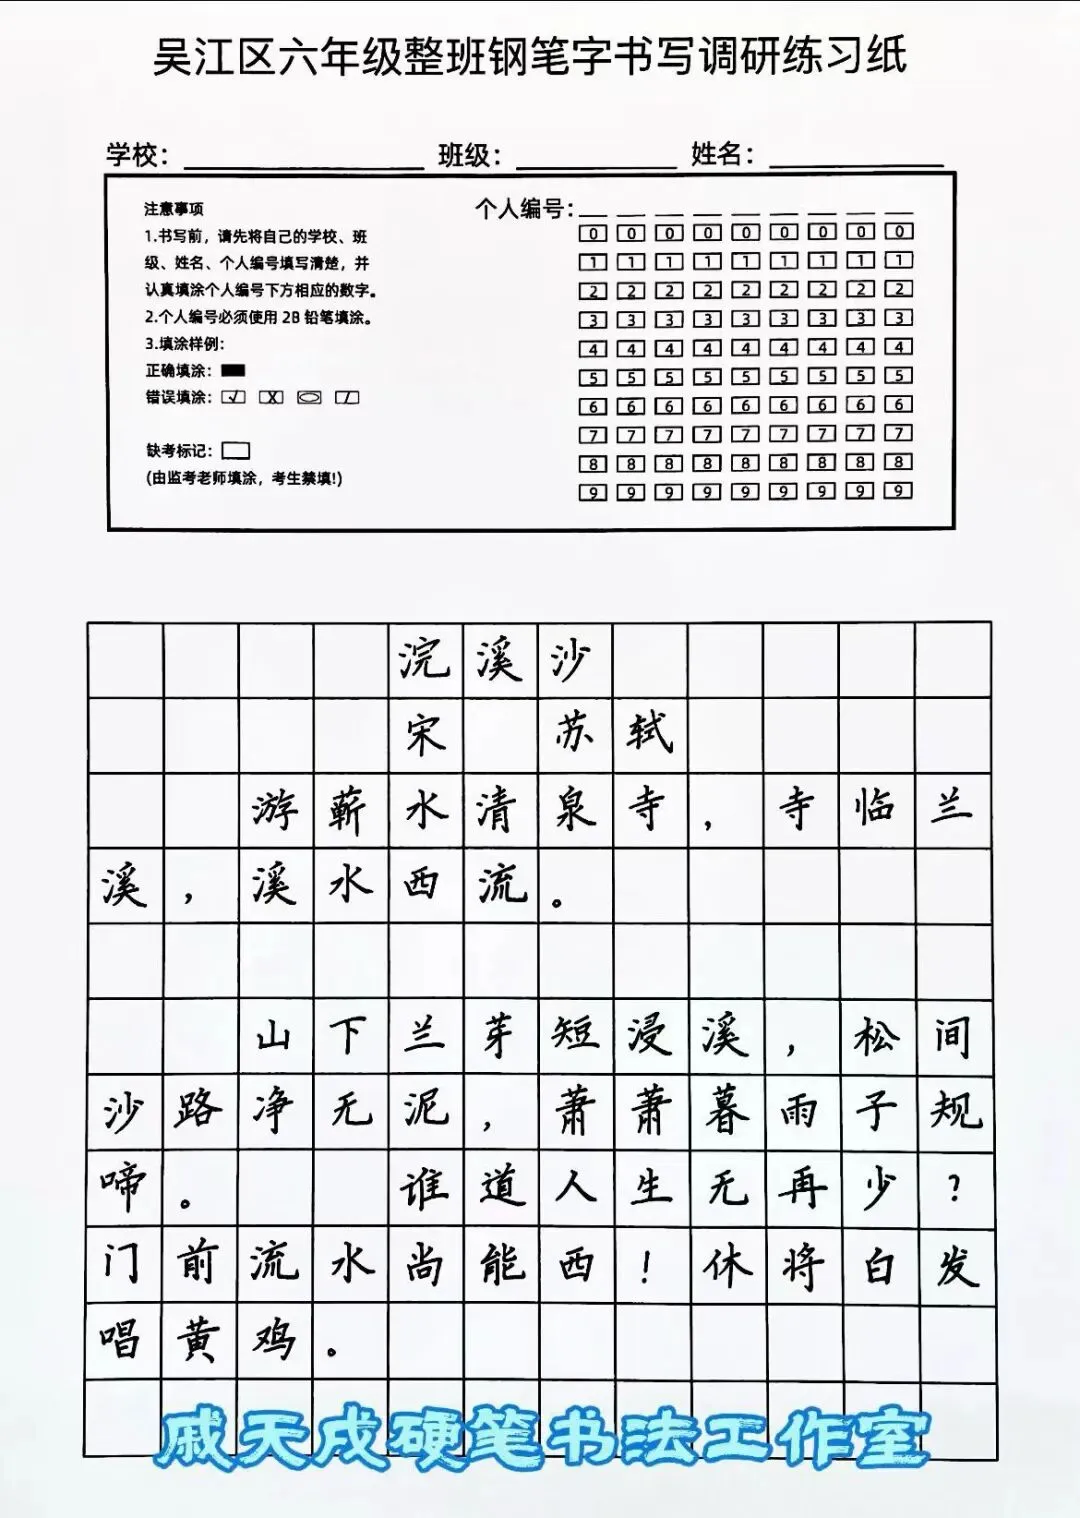 吴江区六年级整班钢笔字书写调研练习纸
学校： 班级： 姓名：
注意事项
1.书写前，请先将自己的学校、班
级、姓名、个人编号填写清楚，并
认真填涂个人编号下方相应的数字。
2.个人编号必须使用 2B 铅笔填涂。
3.填涂样例：
正确填涂：
错误填涂：
缺考标记：
(由监考老师填涂，考生禁填!)
个人编号：
0 0 0 0 0 0 0 0 0
1 1 1 1 1 1 1 1 1
2 2 2 2 2 2 2 2 2
3 3 3 3 3 3 3 3 3
4 4 4 4 4 4 4 4 4
5 5 5 5 5 5 5 5 5
6 6 6 6 6 6 6 6 6
7 7 7 7 7 7 7 7 7
8 8 8 8 8 8 8 8 8
9 9 9 9 9 9 9 9 9
浣溪沙
宋 苏轼
游蕲水清泉寺，寺临兰
溪，溪水西流。
山下兰芽短浸溪，松间
沙路净无泥，萧萧暮雨子规
啼。 谁道人生无再少？
门前流水尚能西！休将白发
唱黄鸡。
戚天成硬笔书法工作室